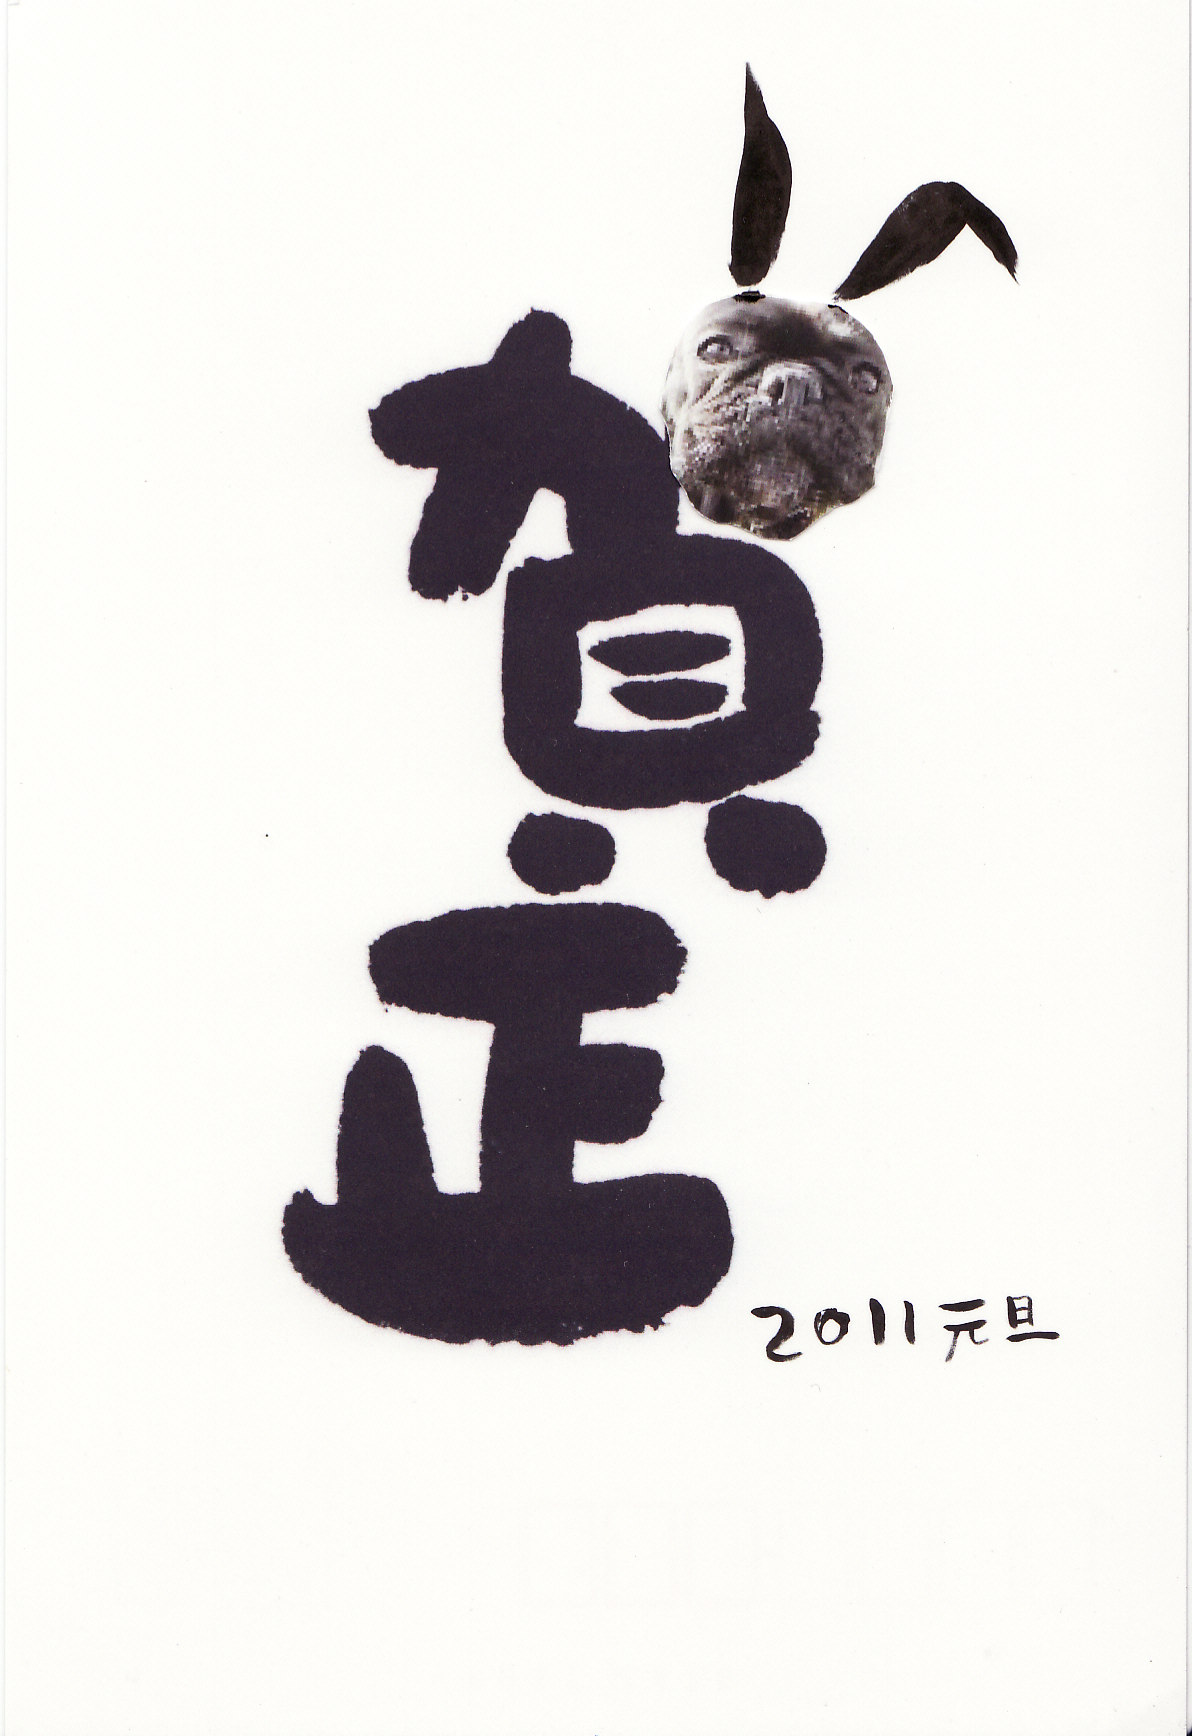 賀正
2011元旦